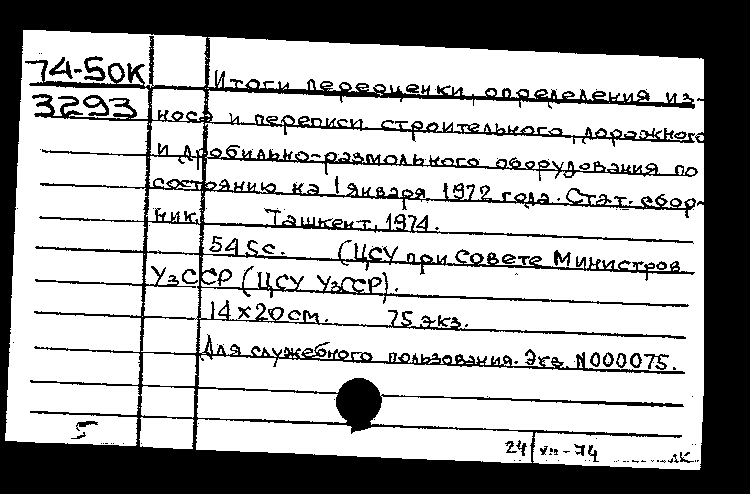 74-50К
3293
Итоги переоценки, определения из-
носа и переписи строительного, дорожного
и дробильно-размольного оборудования по
состоянию на 1 января 1972 года. Стат. сбор-
ник. Ташкент, 1974.
545 с. (ЦСУ при Совете Министров
УзССР (ЦСУ УзССР).
14×20 см. 75 экз.
Для служебного пользования. Экз. N000075.
5
24/XII-74 лк